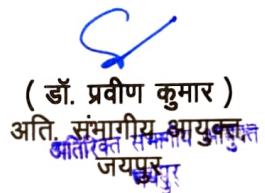 ( डॉ. प्रवीण कुमार )
अति. संभागीय आयुक्त,
अतिरिक्त संभागीय आयुक्त
जयपुर
जयपुर